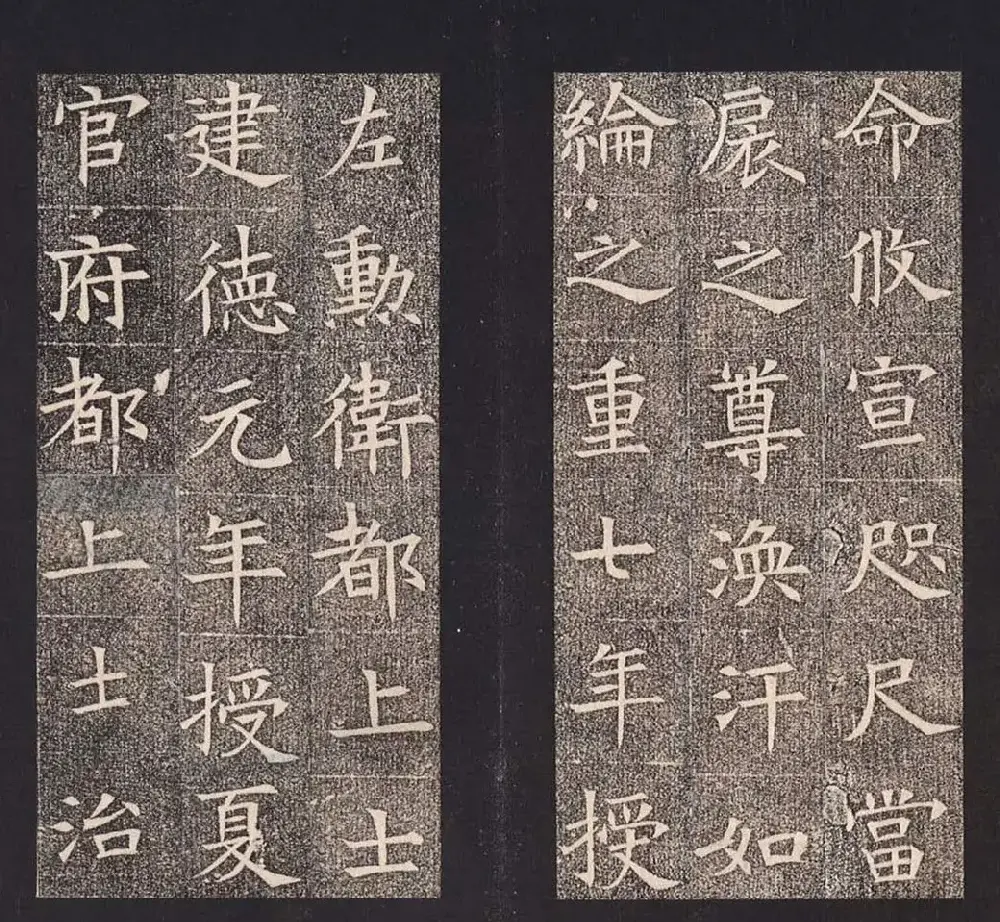 命攸宣咫尺當
扆之尊渙汗如
綸之重七年授
左勳衛都上士
建徳元年授夏
官府都上士治